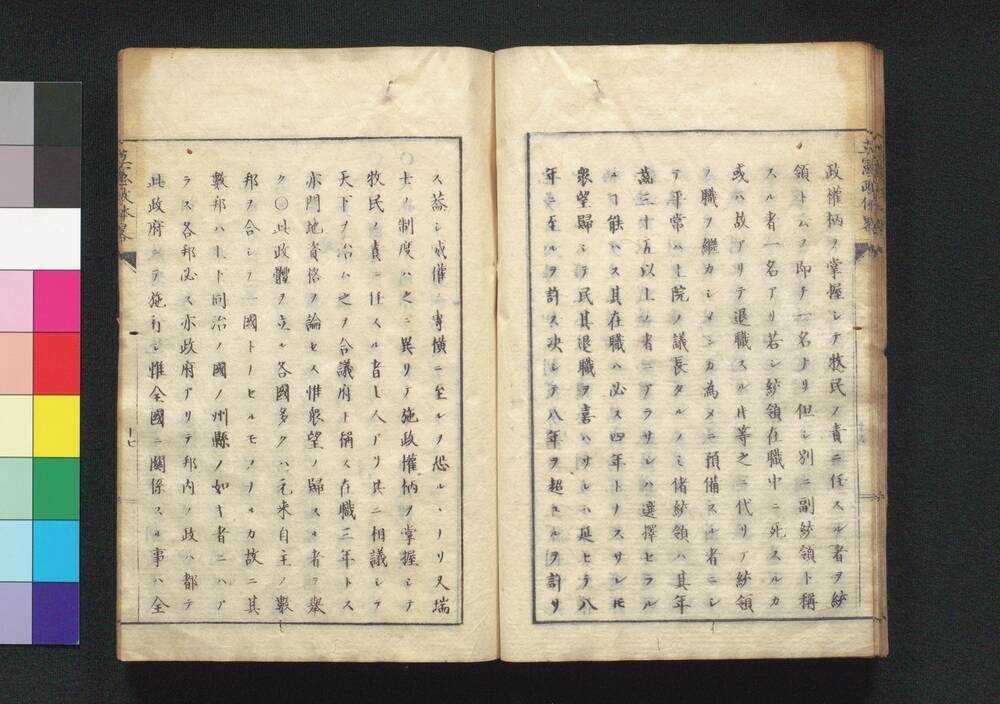 政權柄ヲ掌握シテ牧民ノ責ニ任スル者ヲ統
領トス乃即チ一名ナリ但シ別ニ副統領ト稱
スル者一名アリ若シ統領在職中ニ死スルカ
或ハ故アリテ退職スル片等之ニ代リテ統領
ノ職ヲ繼カシメンカ為メニ預備スル者ニシ
テ平常ハ上院ノ議長タルノミ偖統領ハ其年
葢三十五以上ノ者ニアラサレハ選擇セラル
ルコ能ハス其在職ハ必ス四年トナスサレ𪜈
衆望歸シテ民其退職ヲ喜ハサレハ延ヒテ八
年ニ至ルヲ許ス决シテ八年ヲ超ユルヲ許サ
ス蓋シ威權ノ專横ニ至ルヲ恐ルヽナリ又瑞
士ノ制度ハ之ニ異リテ施政權柄ヲ掌握シテ
牧民ノ責ニ任スル者七人アリ其ニ相議シテ
天下ヲ治ム之ヲ合議府ト稱ス在職三年トス
亦門地資格ヲ論セス惟衆望ノ歸スル者ヲ擧
ク〇此政體ヲ立ル各國多クハ元来自主ノ數
邦ヲ合シテ一國トナセルモノナルカ故ニ其
數邦ハ上下同治ノ國ノ州縣ノ如キ者ニハア
ラス各邦必ス亦政府アリテ邦内ノ政ハ都テ
此政府ニテ施行シ惟全國ニ關係スル事ハ全
十七